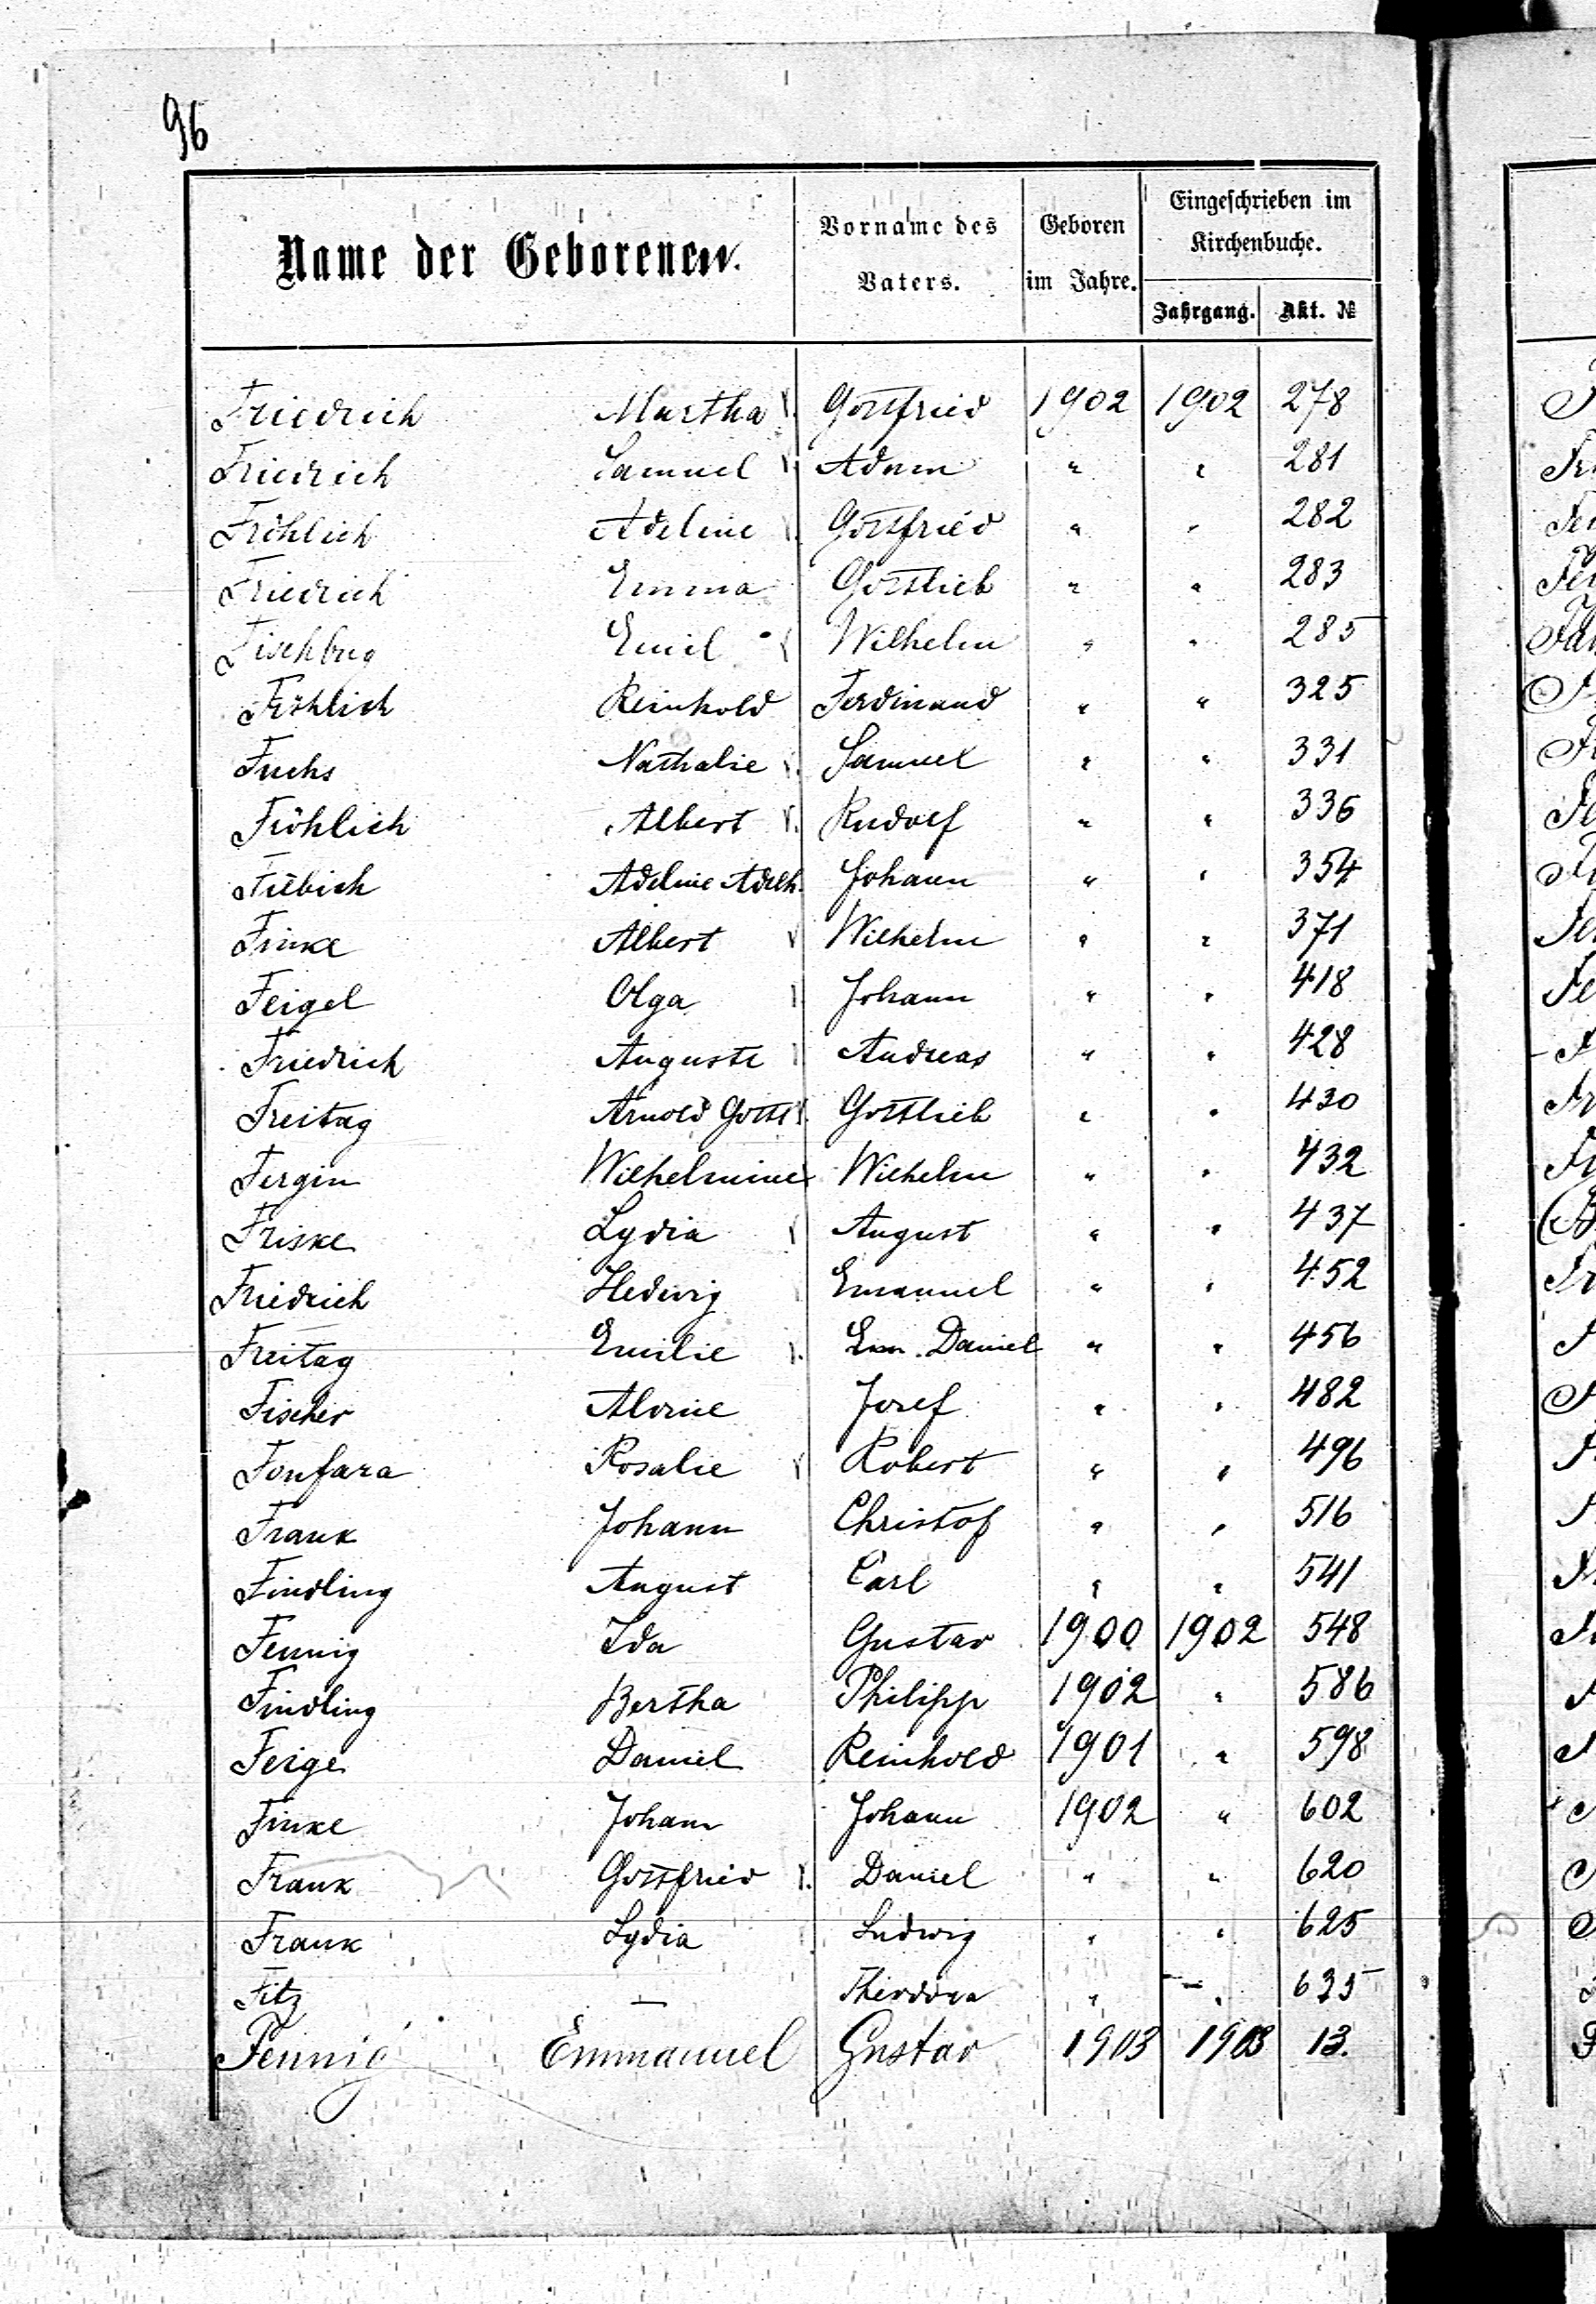 96
Name der Geborenen.
Vorname des Vaters.
Geboren im Jahre.
Eingeschrieben im Kirchenbuche.
Jahrgang. Akt. №
Friedrich Martha Gottfried 1902 1902 278
Friedrich Samuel Adam " " 281
Fröhlich Adeline Gottfried " " 282
Friedrich Emma Gottlieb " " 283
Emil Wilhelm " " 285
Fröhlich Reinhold Ferdinand " " 325
Fuchs Nathalie Samuel " " 331
Fröhlich Albert Rudolf " " 336
Fiebich Adeline Adelh. Johann " " 354
Finke Albert Wilhelm " " 371
Feigel Olga Johann " " 418
Friedrich Auguste Andreas " " 428
Freitag Arnold Gottl. Gottlieb " " 430
Fergin Wilhelmine Wilhelm " " 432
Friske Lydia August " " 437
Friedrich Hedwig Emanuel " " 452
Freitag Emilie Em. Daniel " " 456
Fischer Alvine Josef " " 482
Fonfara Rosalie Robert " " 496
Frank Johann Christof " " 516
Findling August Carl " " 541
Fennig Ida Gustav 1900 1902 548
Findling Bertha Philipp 1902 " 586
Feige Daniel Reinhold 1901 " 598
Finke Johann Johann 1902 " 602
Frank Gottfried Daniel " " 620
Frank Lydia Ludwig " " 625
Fitz — " " 635
Fennig Emmanuel Gustav 1903 1903 13.